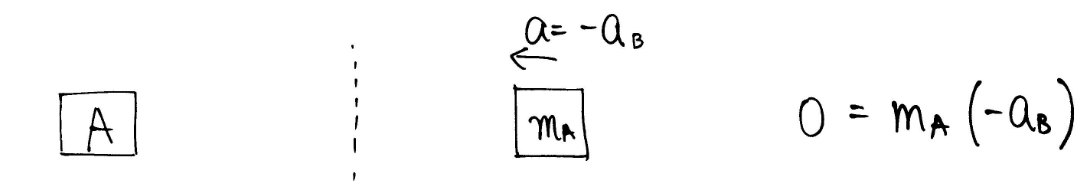 a = -a_B
A
m_A
0 = m_A (-a_B)